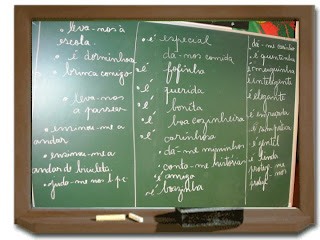 • leva-nos à
escola.
• é dorminhoca
• brinca comigo
• leva-nos
a passear
• ensinou-me a
andar
• ensinou-me a
andar de bicicleta
• ajuda-me no p.c
• é especial
dá-nos comida
• é fofinha
• é querida
• é bonita
• é boa cozinheira
• é carinhosa
• dá-me miminhos
• conta-me histórias
• é amiga
• é
• dá-me carinho
• é
• é meiguinha
• é inteligente
• é elegante
• é engraçada
• é simpática
• é gentil
• é linda
protege-me